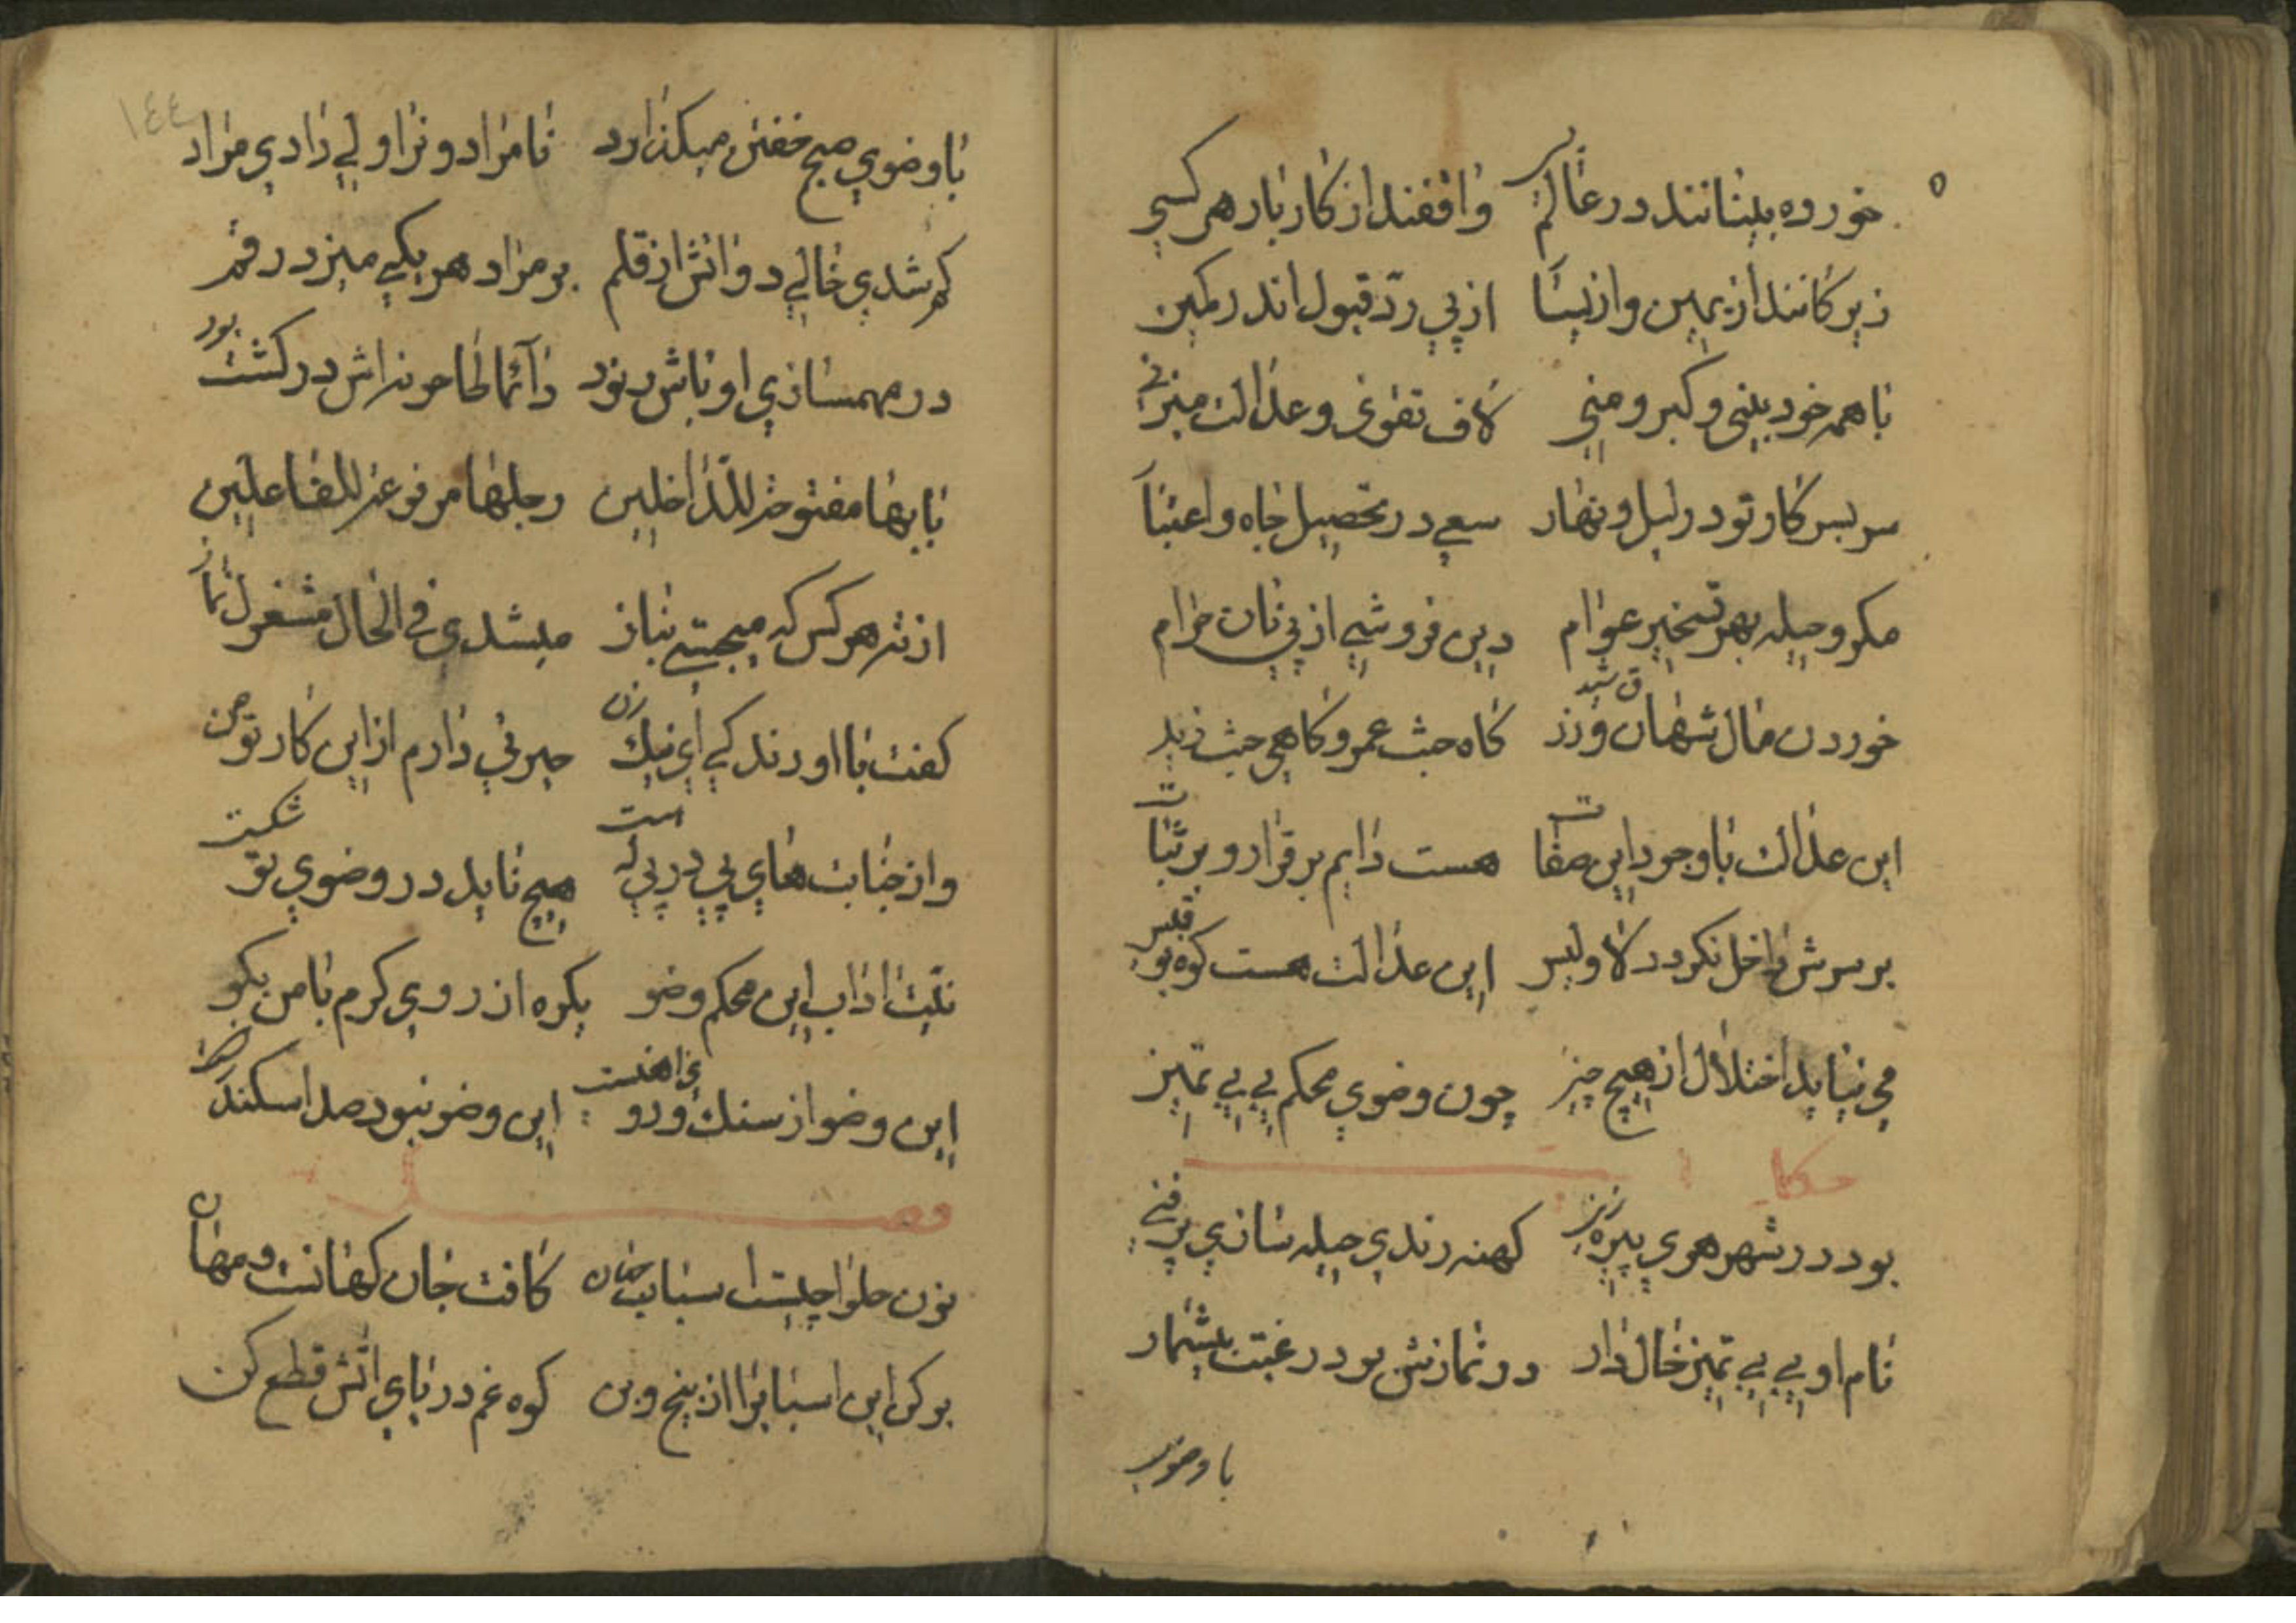 خورده بینانند در عالم بسی واقفند از کار بار هر کسی
زیرکانند از یمین و از یسا از پی ردّ قبول اندر کمین
با همه خود بینی و کبر و منی لاف تقوی و عدالت میزنی
سر بسر کار تو در لیل و نهار سعی در تحصیل جاه و اعتبا
مکر و حیله بهر تسخیر عوام دین فروشی از پی نان حرام
خوردن مال شهان و زرق شید کاه حبث عمرو کاهی حبث زید
این عدالت با وجود این صفات هست دایم بر قرار و بر ثبات
بر سرش داخل نکردد لا و لیس این عدالت هست کوه بو قبیس
می نیاید اختلال از هیچ چیز چون وضوی محکم بی بی تمیز
حکا
بود در شهر هری پیره زنی کهنه رندی حیله سازی پرفنی
نام او بی بی تمیز خال دار در نمازش بود رغبت بیشمار
با وضوی
۱٤٤
با وضوی صبح خفتن میکذارد نامراد و نرا ولی دادی مراد
کم شدی خالی دواتش از قلم بر مراد هر یکی میزد رقم
در مهمسازی اوباش بود دآئما طاحونه اش در کشت بود
بابها مفتوحة للدّاخلین رجلها مرفوعة للفاعلین
از ته هر کس که میجستی بناز میشدی فی الحال مشغول نماز
کفت با او رندکی ای نیک زن حیرتی دارم از این کار تو من
و از جنابت های پی در پی که است هیچ ناید در وضوی تو شکست
نیّت اداب این محکم وضو یکره از روی کرم با من بکو
این وضو از سنک و رو این وضو نبود صد اسکندر
فصل
نون حلوا چیست اسباب جهان کافت جان کهانت و مهان
بر کن این اسبابرا از بیخ و بن کوه غم در پای اتش قطع کن